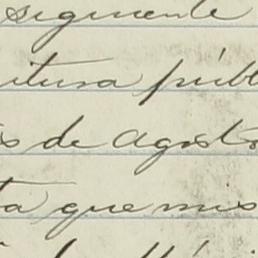 seguiente
itura públ
s de Agosto
ta que mis